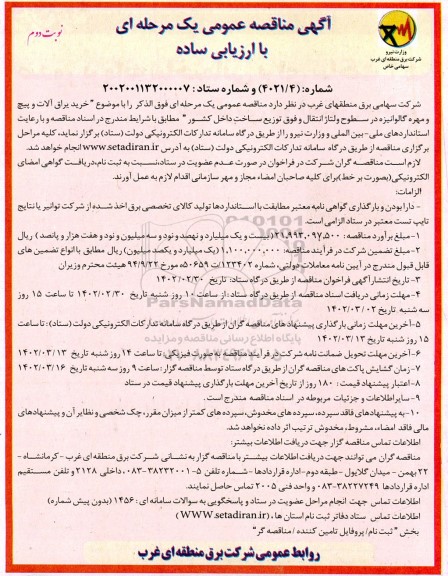 آگهی مناقصه عمومی یک مرحله ای
با ارزیابی ساده
نوبت دوم
وزارت نیرو
شرکت برق منطقه ای غرب
سهامی خاص
شماره: (۴۰۲۱/۴) و شماره ستاد: ۲۰۰۲۰۰۱۱۳۲۰۰۰۰۰۷
شرکت سهامی برق منطقهای غرب در نظر دارد مناقصه عمومی یک مرحله ای فوق الذکر را با موضوع "خرید یراق آلات و پیچ
و مهره گالوانیزه در سطوح ولتاژ انتقال و فوق توزیع ساخت داخل کشور" مطابق با شرایط مندرج در اسناد مناقصه و با رعایت
استانداردهای ملی-بین المللی و وزارت نیرو را از طریق درگاه سامانه تدارکات الکترونیکی دولت (ستاد) برگزار نماید، کلیه مراحل
برگزاری مناقصه از طریق درگاه سامانه تدارکات الکترونیکی دولت (ستاد) به آدرس www.setadiran.ir انجام خواهد شد.
لازم است مناقصه گران شرکت در فراخوان در صورت عدم عضویت در ستاد، نسبت به ثبت نام، دریافت گواهی امضای
الکترونیکی(بصورت بر خط) برای کلیه صاحبان امضاء مجاز و مهر سازمانی اقدام لازم به عمل آورند.
الزامات:
- دارا بودن و بارگذاری گواهی نامه معتبر مطابقت با استانداردها تولید کالای تخصصی برق اخذ شده از شرکت توانیر یا نتایج
تایپ تست معتبر در ستاد الزامی است.
۱-مبلغ برآورد مناقصه: ۲۱,۹۹۳,۰۹۷,۵۰۰(بیست و یک میلیارد و نهصد و نود و سه میلیون و نود و هفت هزار و پانصد) ریال
۲-مبلغ تضمین شرکت در فرآیند مناقصه: ۱,۱۰۰,۰۰۰,۰۰۰ (یک میلیارد و یکصد میلیون) ریال مطابق با انواع تضمین های
قابل قبول مندرج در آیین نامه معاملات دولتی، شماره ۱۲۳۴۰۲/ت ۵۰۶۵۹ه مورخ ۹۴/۹/۲۲ هیئت محترم وزیران
۳-تاریخ انتشار آگهی فراخوان مناقصه از طریق درگاه ستاد: تاریخ ۱۴۰۲/۰۲/۳۰
۴-مهلت زمانی دریافت اسناد مناقصه از طریق درگاه ستاد: از ساعت ۱۰ روز شنبه تاریخ ۱۴۰۲/۰۲/۳۰ تا ساعت ۱۵ روز
سه شنبه تاریخ ۱۴۰۲/۰۳/۰۲
۵-آخرین مهلت زمانی بارگذاری پیشنهادهای مناقصه گران از طریق درگاه سامانه تدارکات الکترونیکی دولت (ستاد): تا ساعت
۱۵ روز شنبه تاریخ ۱۴۰۲/۰۳/۱۳
۶-آخرین مهلت تحویل ضمانت نامه شرکت در فرآیند مناقصه به صورت فیزیکی: تا ساعت ۱۴ روز شنبه تاریخ ۱۴۰۲/۰۳/۱۳
۷-زمان گشایش پاکت های مناقصه گران از طریق درگاه ستاد توسط مناقصه گزار: ساعت ۹ روز سه شنبه تاریخ ۱۴۰۲/۰۳/۱۶
۸-اعتبار پیشنهاد قیمت: ۱۸۰ روز از تاریخ آخرین مهلت بارگذاری پیشنهاد قیمت در ستاد
۹-سایر اطلاعات و جزئیات مربوطه در اسناد مناقصه مندرج است.
۱۰-به پیشنهادهای فاقد سپرده، سپرده های مخدوش، سپرده های کمتر از میزان مقرر، چک شخصی و نظایر آن و پیشنهادهای
مالی فاقد امضاء، مشروط، مخدوش ترتیب اثر داده نخواهد شد.
اطلاعات تماس مناقصه گزار جهت دریافت اطلاعات بیشتر:
مناقصه گران می توانند جهت دریافت اطلاعات بیشتر با مناقصه گزار به نشانی شرکت برق منطقه ای غرب -کرمانشاه-
۲۲ بهمن - میدان گلایول -طبقه دوم-اداره قراردادها -شماره تلفن ۵-۰۸۳-۳۸۲۳۲۰۰۱، داخلی ۲۱۲۸ و تلفن مستقیم
اداره قراردادها ۰۸۳-۳۸۲۲۷۲۴۹ و واحد فنی ۲۰۰۵ تماس حاصل نمایند.
اطلاعات تماس جهت انجام مراحل عضویت در ستاد و پاسخگویی به سوالات سامانه ای: ۱۴۵۶ (بدون پیش شماره)
اطلاعات تماس ستاد دفاتر ثبت نام استان ها، (WWW.setadiran.ir)
بخش "ثبت نام/ پروفایل تامین کننده / مناقصه گر"
روابط عمومی شرکت برق منطقه ای غرب
ParsNamadData
پایگاه اطلاع رسانی مناقصه و مزایده